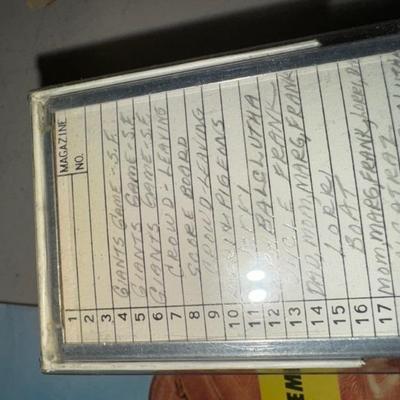 MAGAZINE
NO.
1
2
3
4 GIANTS GAME -- S.F.
5 GIANTS GAME - S.F.
6 GIANTS GAME - S.F.
7 CROWD - LEAVING
8 SCORE BOARD
9 CROWD - LEAVING
10 & PIGEONS
11
12 BALCLUTHA
13 UNCLE FRANK
14 DAD, MOM, MARG, FRANK
15 LORRI
16 BOAT
17 MOM, MARG, FRANK, LORRI,
ALCATRAZ
EM